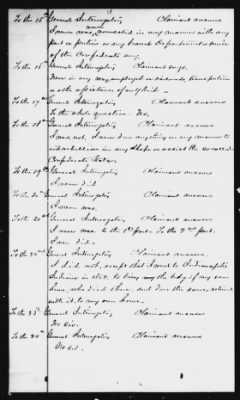 To the 15th General Interrogatory Claimant answers
I never was, connected in any manner with any
part or portion or any branch Department or division
of the Confederate army.
To the 16th General Interrogatory Claimant says.
Never in any way employed in
or the
To the 17th General Interrogatory Claimant answers
To the whole question. No.
To the 18th General Interrogatory Claimant answers
I was not, I never done anything in any manner to
aid in any shape or assist the so called
Confederate States.
To the 19th General Interrogatory Claimant answers
I never did.
To the 20th General Interrogatory Claimant answers
I never was.
To the General Interrogatory Claimant answers
I never was to the 1st part. To the 2nd part.
I never did.
To the 22nd General Interrogatory Claimant answers.
I did not, except that I went to Indianapolis
Indiana in to bring the body of my
son, who died there, and from the same returned
with it to my own home.
To the 23d General Interrogatory Claimant answers
No Sir.
To the 24th General Interrogatory Claimant answers
No Sir.